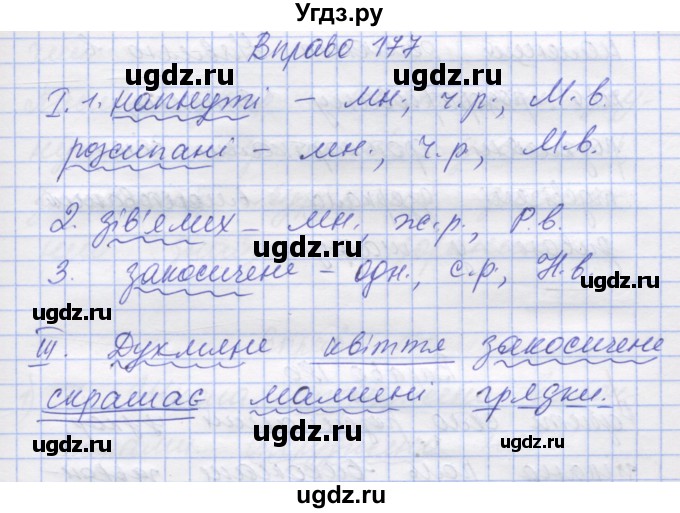 Угдз.ру
Вправа 177
ugdz.ru ugdz.ru
І. 1. напнуті – мн., ч.р., М.в.
розсипані – мн., ч.р., М.в.
ugdz.ru ugdz.ru
2. зів'ялих – мн., ж.р., Р.в.
ugdz.ru
3. закосичене – одн., с.р., Н.в.
ugdz.ru ugdz.ru
ІІІ. Духмяне квіття закосичене
скрашає мамині грядки.
ugdz.ru ugdz.ru
ugdz.ru